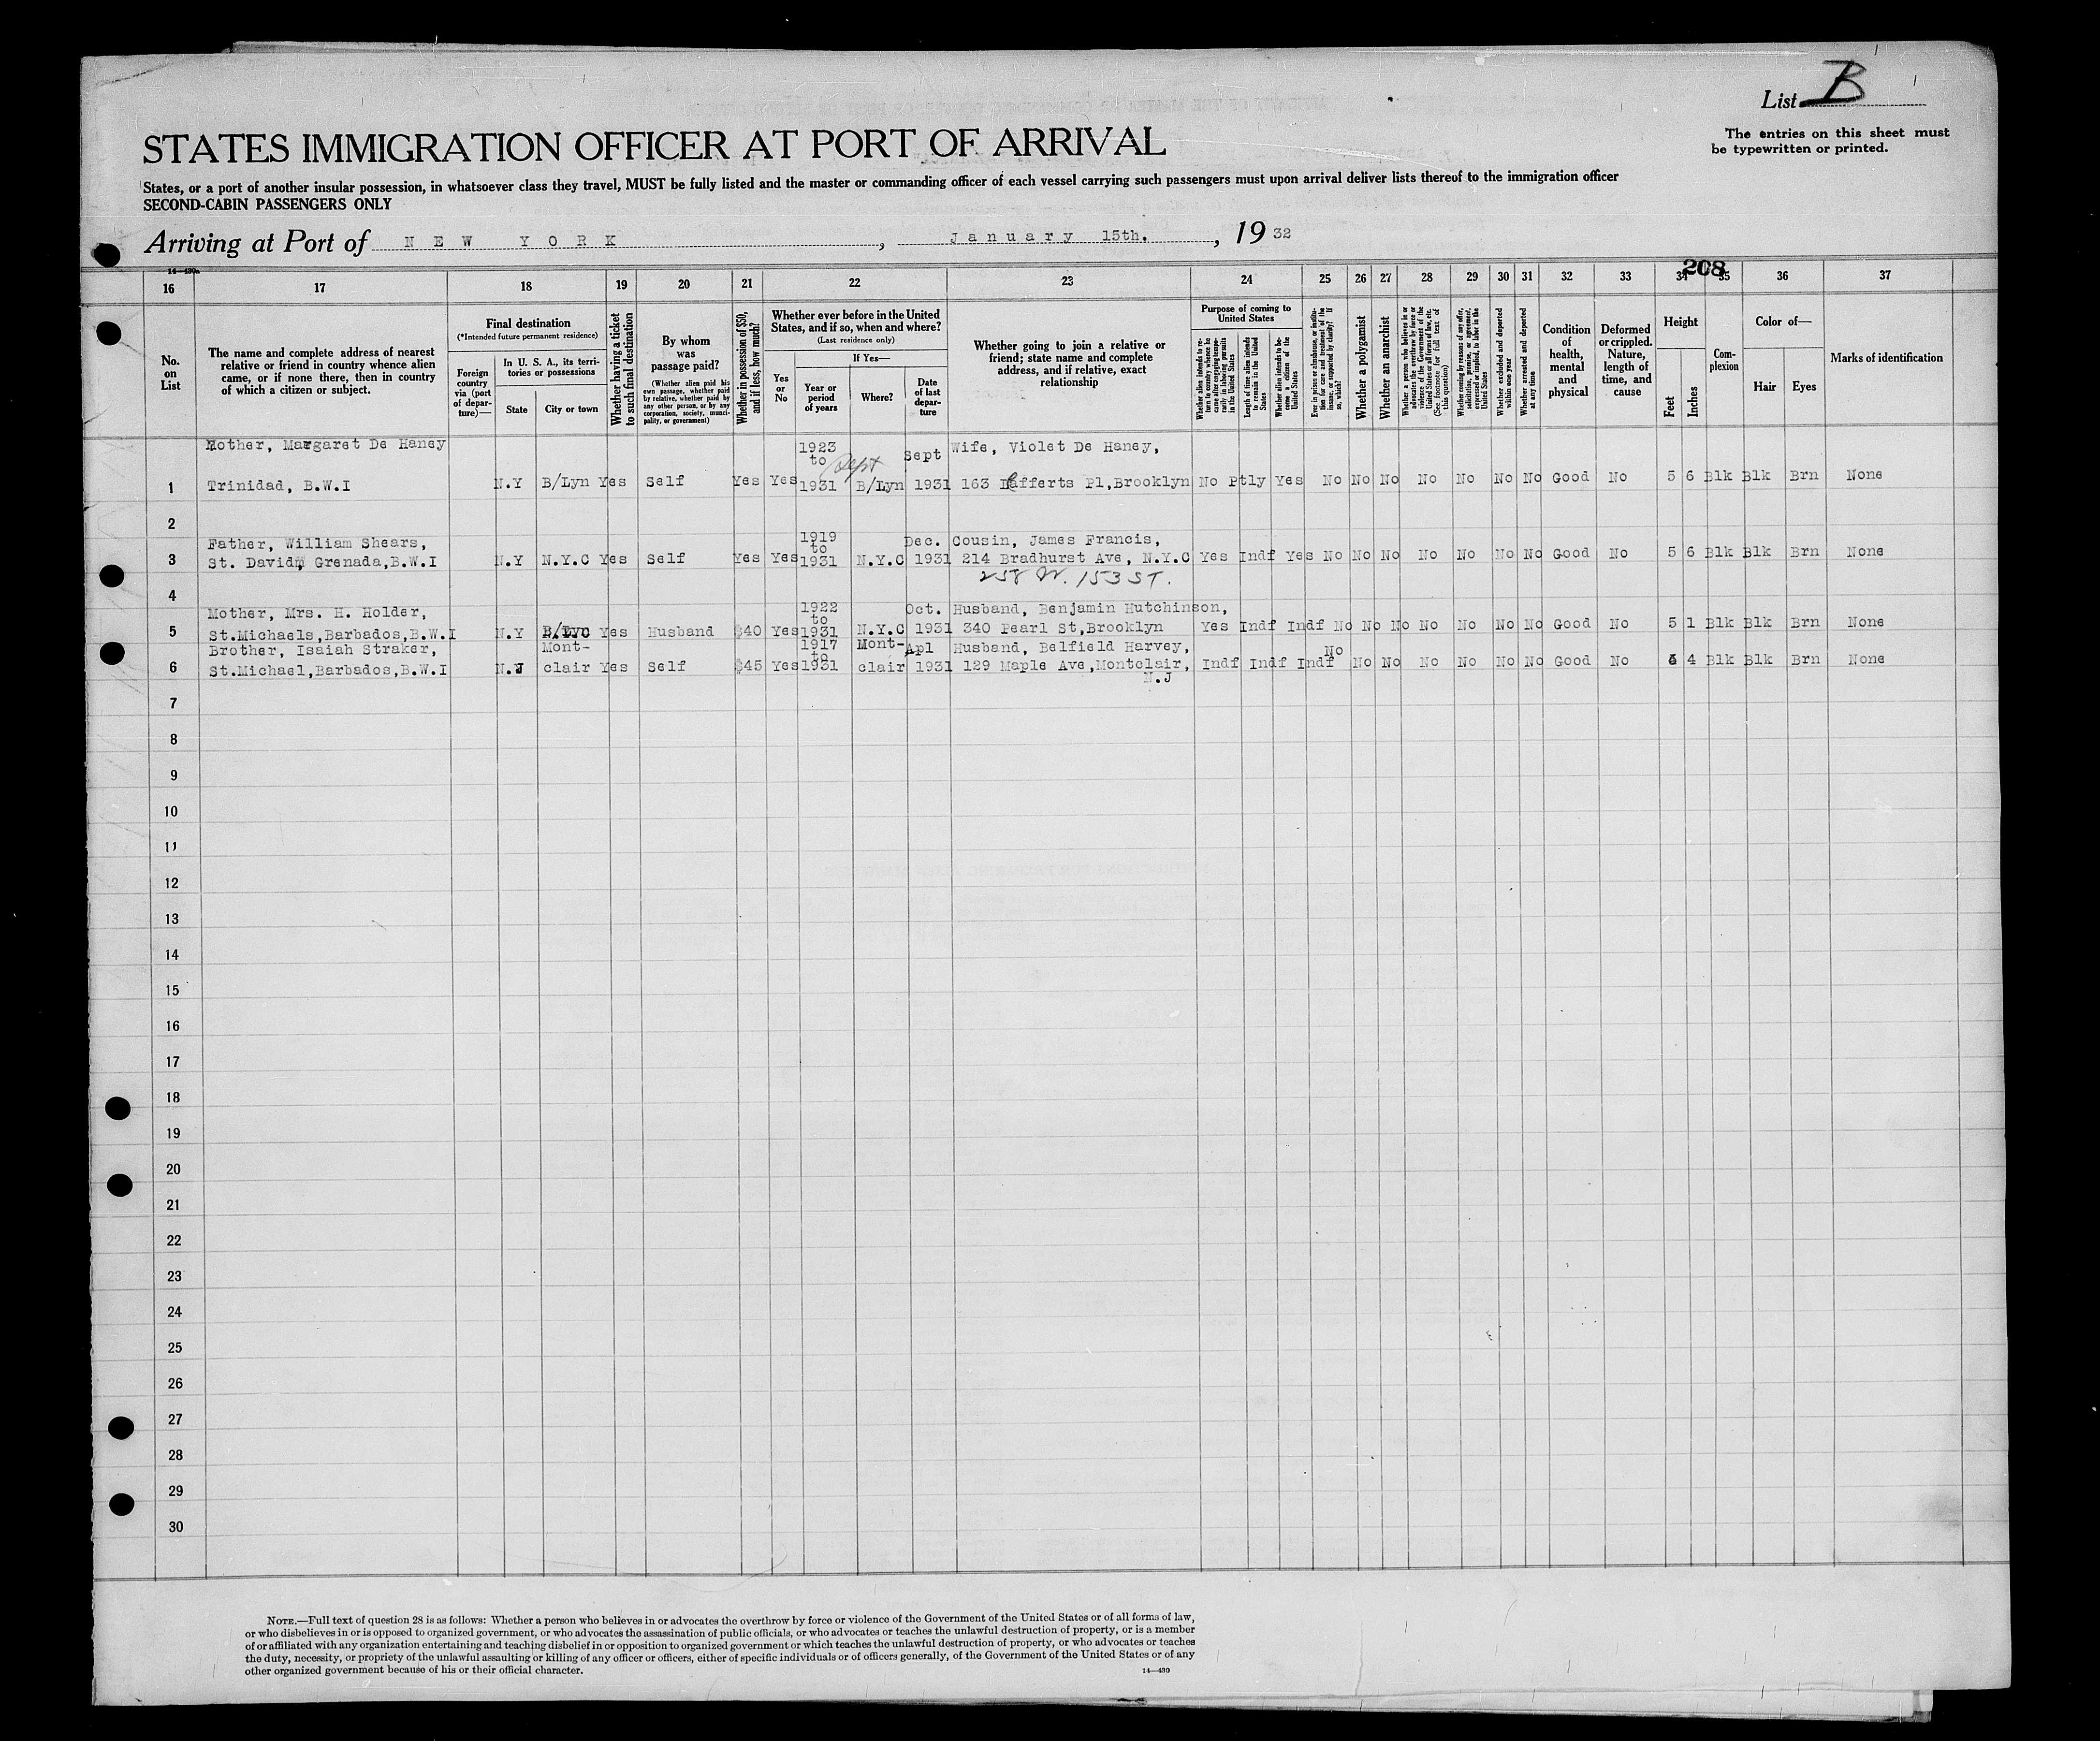 List B
The entries on this sheet must
be typewritten or printed.
STATES IMMIGRATION OFFICER AT PORT OF ARRIVAL
States, or a port of another insular possession, in whatsoever class they travel, MUST be fully listed and the master or commanding officer of each vessel carrying such passengers must upon arrival deliver lists thereof to the immigration officer
SECOND-CABIN PASSENGERS ONLY
Arriving at Port of NEW YORK, January 15th., 1932
208
16 17 18 19 20 21 22 23 24 25 26 27 28 29 30 31 32 33 34 35 36 37
No. on List
The name and complete address of nearest
relative or friend in country whence alien
came, or if none there, then in country
of which a citizen or subject.
Final destination
(*Intended future permanent residence)
Foreign country via (port of departure)—
In U. S. A., its territories or possessions
State City or town
Whether having a ticket to such final destination
By whom was passage paid?
(Whether alien paid his own passage, whether paid by relative, whether paid by any other person, or by any corporation, society, municipality, or government)
Whether in possession of $50, and if less, how much?
Whether ever before in the United States, and if so, when and where?
(Last residence only)
Yes or No
If Yes—
Year or period of years
Where?
Date of last departure
Whether going to join a relative or
friend; state name and complete
address, and if relative, exact
relationship
Purpose of coming to United States
Whether alien intends to return to country whence he came after engaging temporarily in laboring pursuits in the United States
Length of time alien intends to remain in the United States
Whether alien intends to become a citizen of the United States
Ever in prison or almshouse, or institution for care and treatment of the insane, or supported by charity? If so, which?
Whether a polygamist
Whether an anarchist
Whether a person who believes in or advocates the overthrow by force or violence of the Government of the United States or all forms of law, etc. (See footnote for full text of this question)
Whether coming by reason of any offer, solicitation, promise, or agreement, expressed or implied, to labor in the United States
Whether excluded and deported within one year
Whether arrested and deported at any time
Condition of health, mental and physical
Deformed or crippled. Nature, length of time, and cause
Height
Feet Inches
Complexion
Color of—
Hair Eyes
Marks of identification
Mother, Margaret De Haney 1923 to Sept Sept Wife, Violet De Haney,
1 Trinidad, B.W.I N.Y B/Lyn Yes Self Yes Yes 1931 B/Lyn 1931 163 Lefferts Pl,Brooklyn No Ptly Yes No No No No No No No Good No 5 6 Blk Blk Brn None
2
Father, William Shears, 1919 to Dec. Cousin, James Francis,
3 St. David, Grenada,B.W.I N.Y N.Y.C Yes Self Yes Yes 1931 N.Y.C 1931 214 Bradhurst Ave, N.Y.C Yes Indf Yes No No No No No No No Good No 5 6 Blk Blk Brn None
258 W. 153 ST.
4
Mother, Mrs. H. Holder, 1922 to Oct. Husband, Benjamin Hutchinson,
5 St.Michaels,Barbados,B.W.I N.Y Yes Husband $40 Yes 1931 N.Y.C 1931 340 Pearl St,Brooklyn Yes Indf Indf No No No No No No No Good No 5 1 Blk Blk Brn None
Brother, Isaiah Straker, Mont- 1917 to Mont- Apl Husband, Belfield Harvey, No
6 St.Michael,Barbados,B.W.I N.J clair Yes Self $45 Yes 1931 clair 1931 129 Maple Ave,Montclair, Indf Indf Indf No No No No No No Good No 4 Blk Blk Brn None
N.J
7
8
9
10
11
12
13
14
15
16
17
18
19
20
21
22
23
24
25
26
27
28
29
30
NOTE.—Full text of question 28 is as follows: Whether a person who believes in or advocates the overthrow by force or violence of the Government of the United States or of all forms of law,
or who disbelieves in or is opposed to organized government, or who advocates the assassination of public officials, or who advocates or teaches the unlawful destruction of property, or is a member
of or affiliated with any organization entertaining and teaching disbelief in or opposition to organized government or which teaches the unlawful destruction of property, or who advocates or teaches
the duty, necessity, or propriety of the unlawful assaulting or killing of any officer or officers, either of specific individuals or of officers generally, of the Government of the United States or of any
other organized government because of his or their official character.
14—430